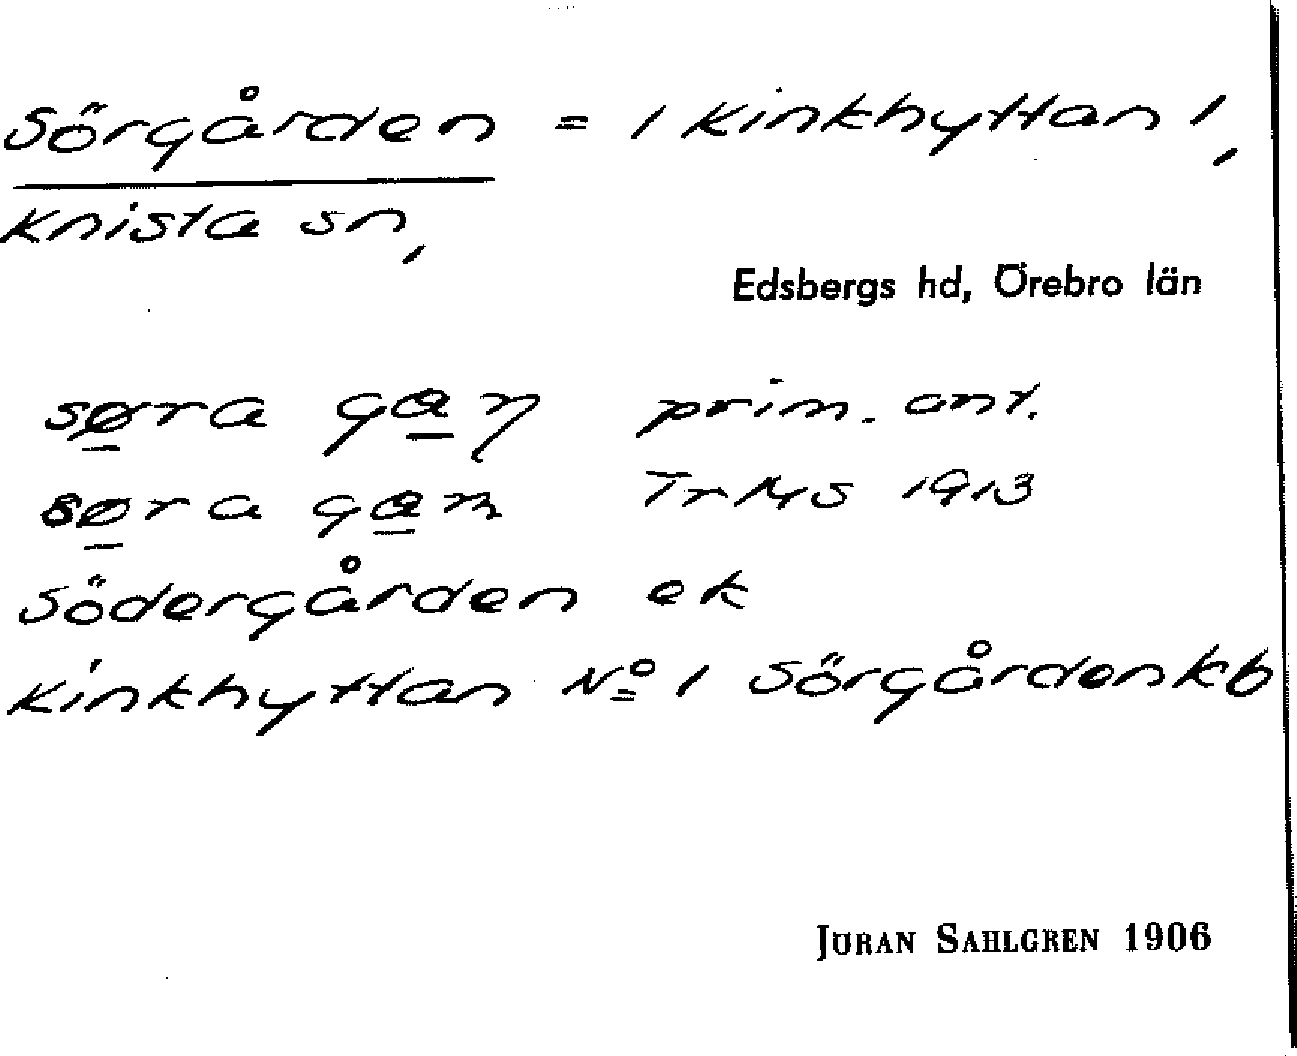 Sörgården = 1 Kinkhyttan 1,
Knista sn,
Edsbergs hd, Örebro län
søra gaꞃ prim. ant.
søra gan TrMS 1913
Södergården ek
Kinkhyttan No 1 Sörgården kb
JÖRAN SAHLGREN 1906